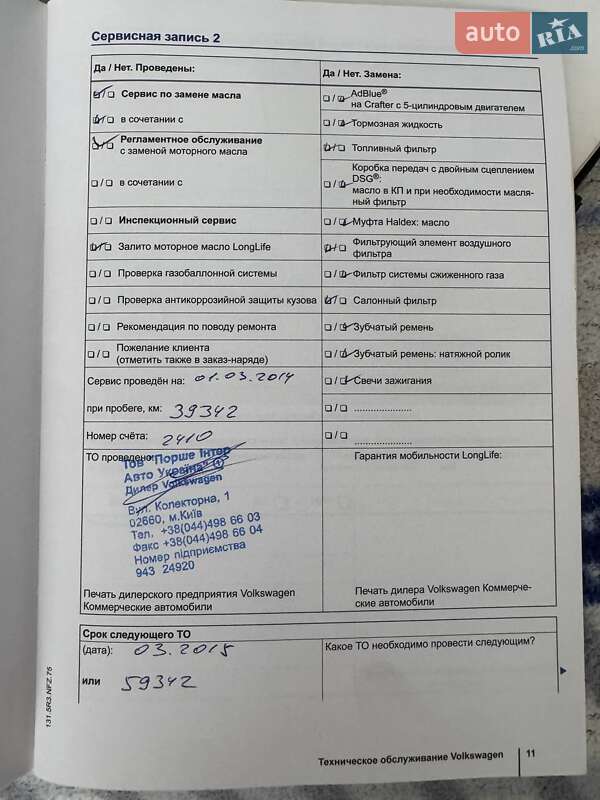 auto RIA.com
Сервисная запись 2
Да / Нет. Проведены:
Да / Нет. Замена:
/ Сервис по замене масла
/ AdBlue®
на Crafter с 5-цилиндровым двигателем
/ в сочетании с
/ Тормозная жидкость
/ Регламентное обслуживание
с заменой моторного масла
/ Топливный фильтр
/ в сочетании с
Коробка передач с двойным сцеплением
/ DSG®:
масло в КП и при необходимости масля-
ный фильтр
/ Инспекционный сервис
/ Муфта Haldex: масло
/ Залито моторное масло LongLife
/ Фильтрующий элемент воздушного
фильтра
/ Проверка газобаллонной системы
/ Фильтр системы сжиженного газа
/ Проверка антикоррозийной защиты кузова
/ Салонный фильтр
/ Рекомендация по поводу ремонта
/ Зубчатый ремень
/ Пожелание клиента
(отметить также в заказ-наряде)
/ Зубчатый ремень: натяжной ролик
Сервис проведён на: 01.03.2014
/ Свечи зажигания
при пробеге, км: 39342
/ .....................
Номер счёта: 2410
/ .....................
ТО проведено:
Гарантия мобильности LongLife:
Тов "Порше Інтер
Авто Україна" 1
Дилер Volkswagen
Вул. Колекторна, 1
02660, м.Київ
Тел. +38(044)498 66 03
Факс +38(044)498 66 04
Номер підприємства
943 24920
Печать дилерского предприятия Volkswagen
Коммерческие автомобили
Печать дилера Volkswagen Коммерче-
ские автомобили
Срок следующего ТО
(дата): 03.2015
Какое ТО необходимо провести следующим?
или 59342
131.5R3.NFZ.75
Техническое обслуживание Volkswagen 11